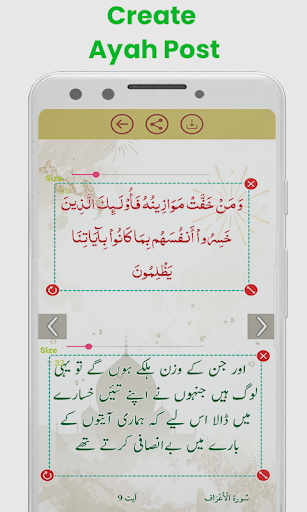 Create
Ayah Post
Size
35
وَمَنْ خَفَّتْ مَوَازِينُهُ فَأُولَٰئِكَ الَّذِينَ
خَسِرُواْ أَنفُسَهُم بِمَا كَانُواْ بِآيَاتِنَا
يَظْلِمُونَ
Size
اور جن کے وزن ہلکے ہوں گے تو یہی
لوگ ہیں جنہوں نے اپنے تئیں خسارے
میں ڈالا اس لیے کہ ہماری آیتوں کے
بارے میں بےانصافی کرتے تھے
سُورَة الْأَعْرَاف
آیت 9